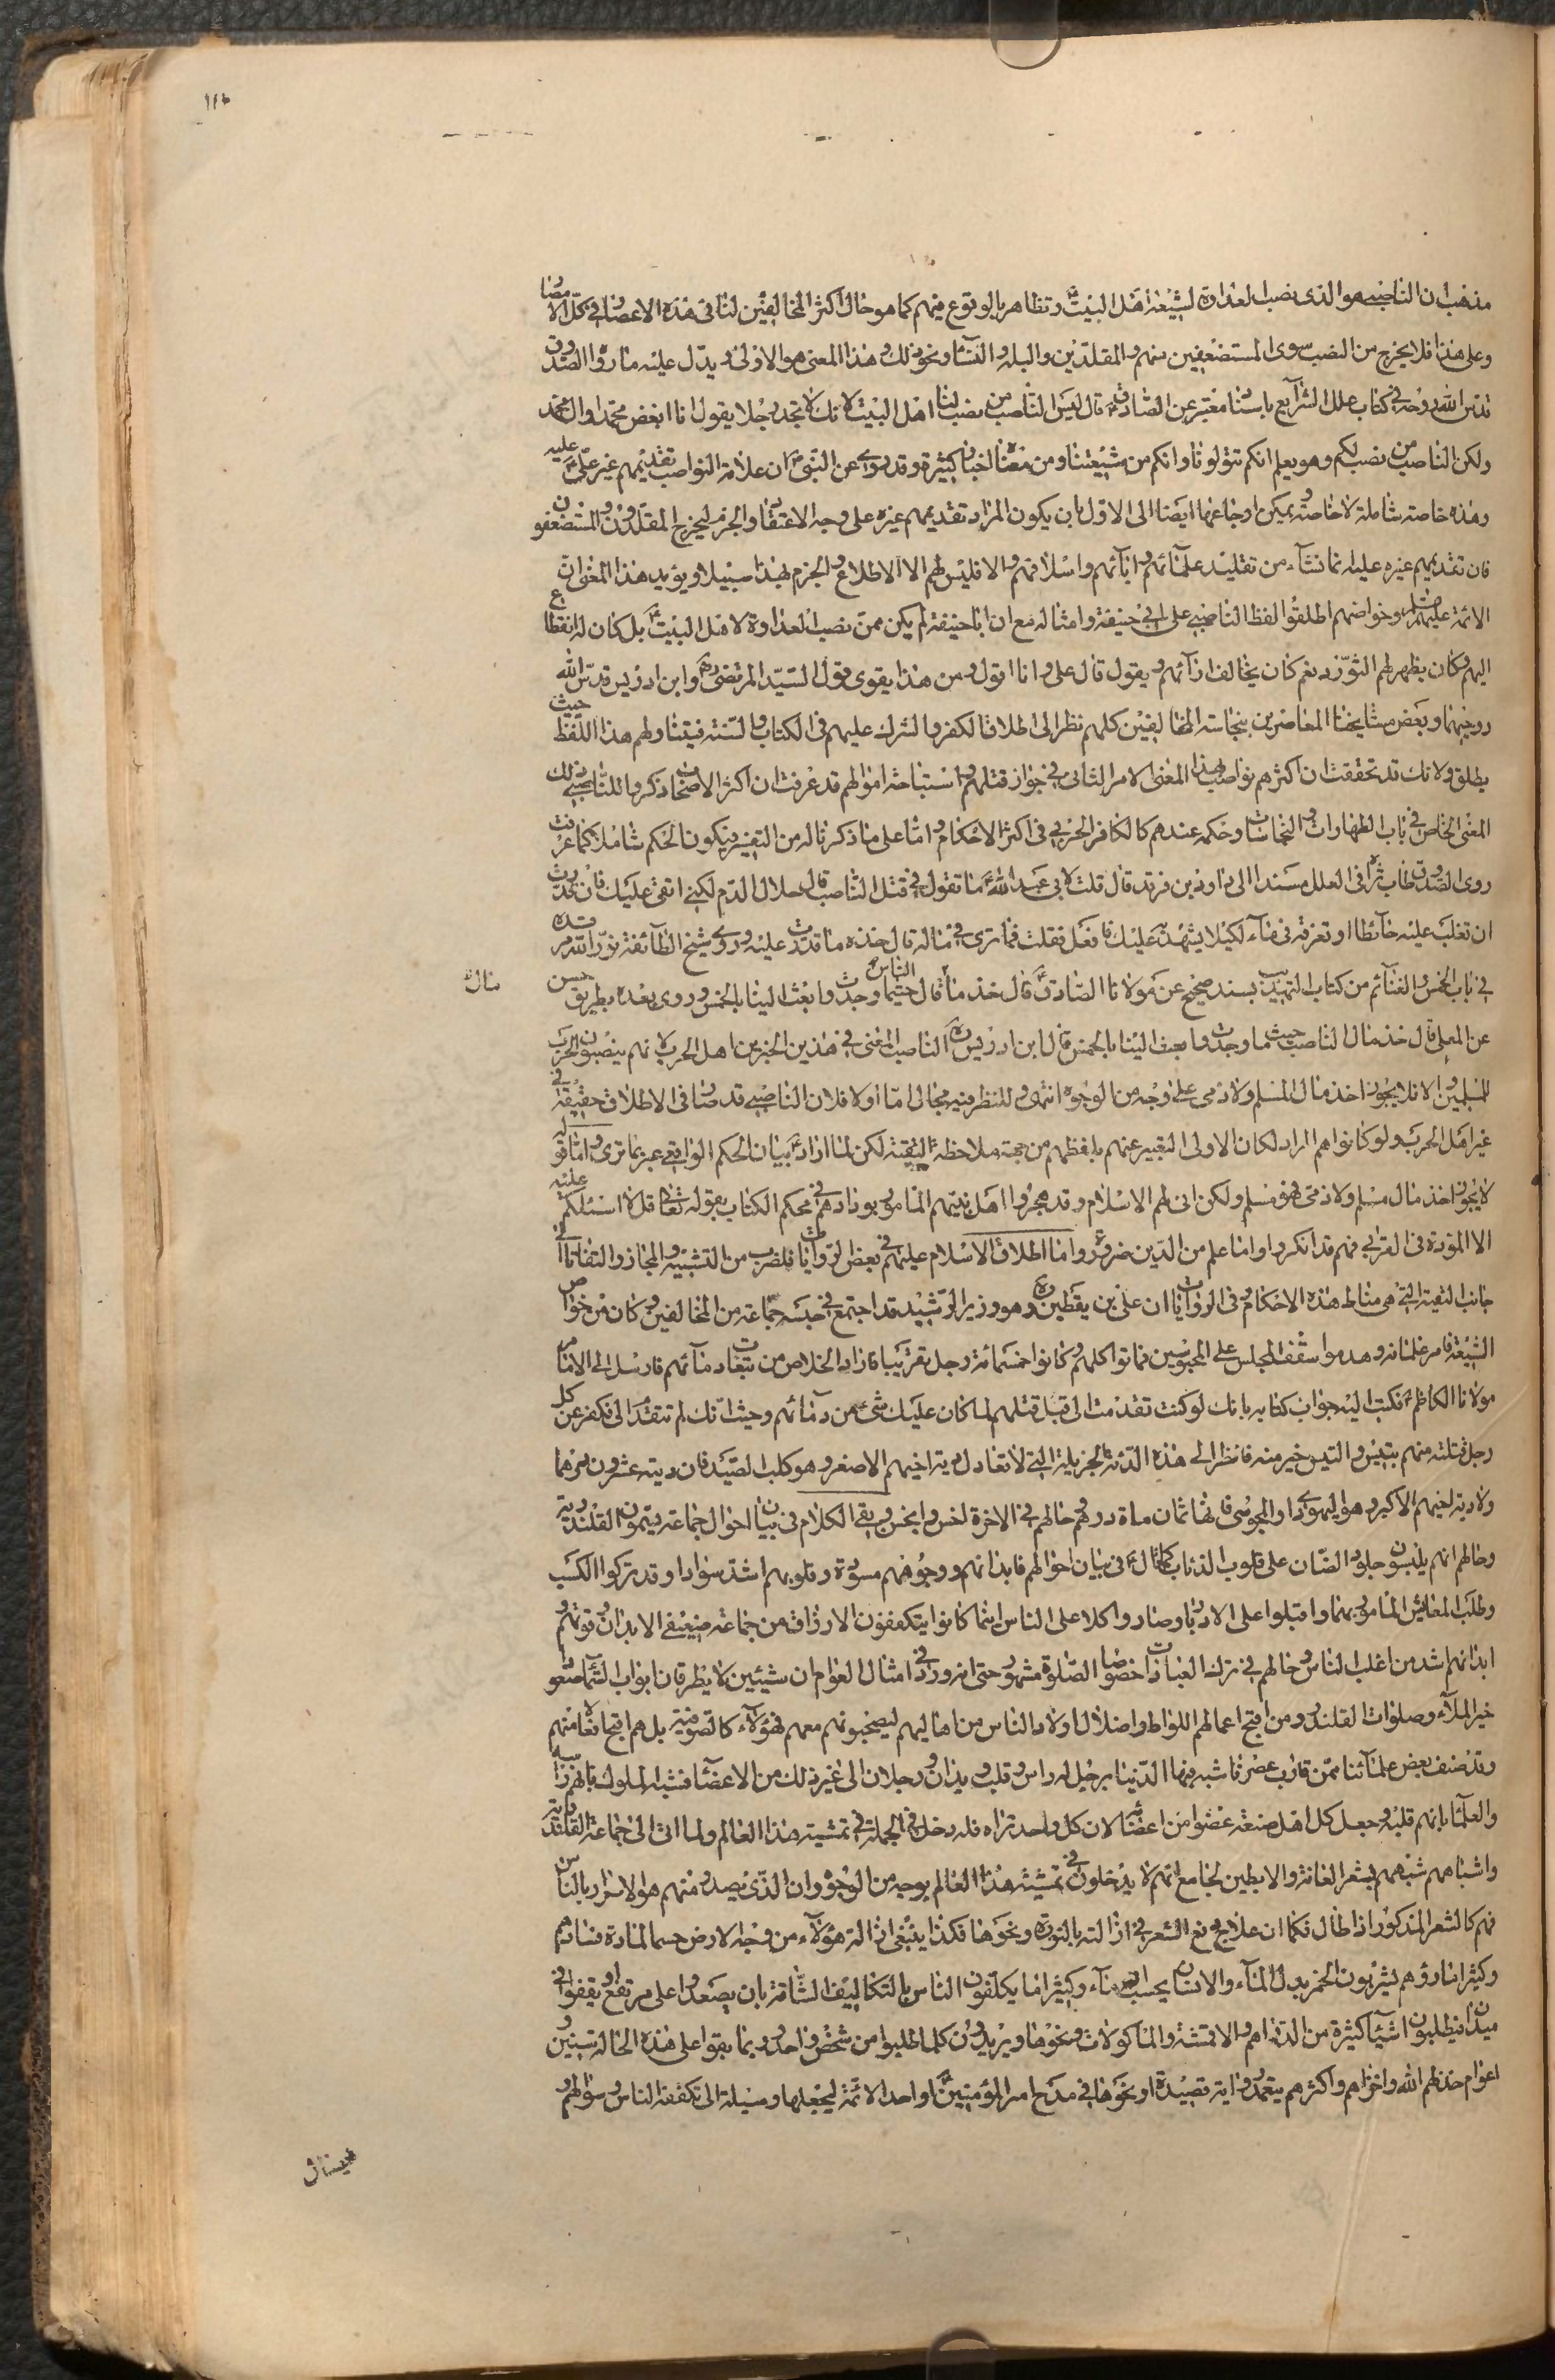 ١١٣
مذهب ان الناصبي هو الذي نصب العداوة لشيعة اهل البيت ع و تظاهر بالوقوع فيهم كما هو حال اكثر المخالفين لنا في هذه الاعصار في كل الامصار
وعلى هذا فلا يخرج من النصب سوى المستضعفين منهم و المقلدين والبله و النساء ونحو ذلك و هذا المعنى هو الاولى و يدل عليه ما رواه الصدوق
قدس الله روحه في كتاب علل الشرايع باسناد معتبر عن الصادق ع قال ليس الناصب من نصب لنا اهل البيت لانك لا تجد رجلا يقول انا ابغض محمدا و ال محمد
ولكن الناصب من نصب لكم وهو يعلم انكم تتولونا وانكم من شيعتنا ومن معناه اخبار كثيرة وقد روي عن النبي ص ان علامة النواصب تقديمهم غير علي ع عليه
وهذه خاصة شاملة لا خاصة و يمكن ارجاعها ايضا الى الاول بان يكون المراد تقديمهم غيره على وجه الاعتقاد والجزم ليخرج المقلدون و المستضعفون
فان تقديمهم غيره عليه انما نشاء من تقليد علمائهم و ابائهم واسلافهم و الا فليس لهم الى الاطلاع و الجزم بهذا سبيلا ويؤيد هذا المعنى ان
الائمة عليهم السلم و خواصهم اطلقوا لفظ الناصبي على ابي حنيفة وامثاله مع ان ابا حنيفة لم يكن ممن نصب العداوة لاهل البيت ع بل كان له انقطاع
اليهم وكان يظهر لهم التودد نعم كان يخالف ارائهم و يقول قال علي و انا اقول و من هذا يقوى قول السيد المرتضى ره وابن ادريس قدس الله
روحيهما و بعض مشايخنا المعاصرين بنجاسة المخالفين كلهم نظرا الى اطلاق الكفر و الشرك عليهم في الكتاب و السنة فيتناولهم هذا اللفظ حيث
يطلق ولانك قد تحققت ان اكثرهم نواصب بهذا المعنى الامر الثاني في جواز قتلهم و استباحة اموالهم قد عرفت ان اكثر الاصحاب ذكروا للناصبي ذلك
المعنى الخاص في باب الطهارات و النجاسات و حكمه عندهم كالكافر الحربي في اكثر الاحكام و اما على ما ذكرناه له من التفسير فيكون الحكم شاملا كما عرفت
روى الصدوق طاب ثراه في العلل مسندا الى داود بن فرقد قال قلت لابي عبد الله ع ما تقول في قتل الناصب قال حلال الدم لكني اتقي عليك فان قدرت
ان تقلب عليه حائطا او تغرقه في ماء لكيلا يشهد به عليك فافعل فقلت فما ترى في ماله قال خذه ما قدرت عليه وروى شيخ الطائفة نور الله مرقده
في باب الخمس و الغنائم من كتاب التهذيب بسند صحيح عن مولانا الصادق ع قال خذ مال الناصب حيثما وجدت وابعث الينا بالخمس و روى بعده بطريق حسن
عن المعلى قال خذ مال الناصب حيث ما وجدت و ابعث الينا بالخمس قال ابن ادريس ره الناصب المعني في هذين الخبرين اهل الحرب لانهم ينصبون الحرب
للمسلمين و الا فلا يجوز اخذ مال المسلم ولا ذمي على وجه من الوجوه انتهى و للنظر فيه مجال اما اولا فلان الناصبي قد صار في الاطلاق حقيقة في
غير اهل الحرب و لو كانوا هم المراد لكان الاولى التعبير عنهم بلفظهم من جهة ملاحظة التقية لكن لما اراد ع بيان الحكم الواقعي عبر بما ترى و اما قوله
لا يجوز اخذ مال مسلم ولا ذمي فهو مسلم ولكن انى لهم الاسلام وقد هجروا اهل بيتهم المامور بودادهم في محكم الكتاب بقوله تعالى قل لا اسئلكم عليه
الا المودة في القربى فهم قد انكروا ما علم من الدين ضرورة و اما اطلاق الاسلام عليهم في بعض الروايات فلضرب من التشبيه و المجاز و التفاتا الى
جانب التقية التي هي مناط هذه الاحكام و في الروايات ان علي بن يقطين ره وهو وزير الرشيد قد اجتمع في حبسه جماعة من المخالفين و كان من خواص
الشيعة فامر غلمانه و هدموا سقف المحبس على المحبوسين فماتوا كلهم و كانوا خمسمائة رجل تقريبا فاراد الخلاص من تبعات دمائهم فارسل الى الامام
مولانا الكاظم ع فكتب اليه جواب كتابه بانك لو كنت تقدمت الي قبل قتلهم لما كان عليك شيء من دمائهم وحيث انك لم تتقدم الي فكفر عن كل
رجل قتلته منهم بتيس و التيس خير منه فانظر الى هذه الدية الجزيلة التي لا تعادل دية اخيهم الاصغر و هو كلب الصيد فان ديته عشرون درهما
ولا دية اخيهم الاكبر و هو اليهودي او المجوسي فانها ثمان ماة درهم و حالهم في الاخرة اخس وابخس و بقي الكلام في بيان احوال جماعة يتسمون القلندرية
وحالهم انهم يلبسون جلود الضان على قلوب الذئاب كما قال ع في بيان احوالهم فابدانهم و وجوههم مسودة و قلوبهم اشد سوادا وقد تركوا الكسب
وطلب المعايش المامور بهما واقبلوا على الادبار وصاروا كلا على الناس اينما كانوا يتكففون الارزاق من جماعة ضعيفي الابدان و قوتهم و
ابدانهم اشد من اغلب الناس و حالهم في ترك العبادات خصوصا الصلوة مشهور حتى انه ورد في امثال العوام ان شيئين لا يطرقان ابواب السماء صعودا
خير الملاء وصلوات القلندر و من اقبح اعمالهم اللواط و اضلال اولاد الناس من اهاليهم ليصحبونهم معهم فهؤلاء كالصوفية بل هم اقبح افعالا منهم
وقد صنف بعض علمائنا ممن قارب عصرنا شبه فيها الدنيا برجل له راس و قلب و يدان و رجلان الى غير ذلك من الاعضاء فشبه الملوك بانهم راسه
والعلماء بانهم قلبه و جعل كل اهل صنعة عضوا من اعضائه لان كل واحد تراه فله دخل في الجملة في تمشية هذا العالم ولما اتى الى جماعة القلندرية
واشباههم شبههم بشعر العانة والابطين لجامع انهم لا يدخلون في تمشية هذا العالم بوجه من الوجوه وان الذي يصدر منهم هو الاضرار بالناس
فهم كالشعر المذكور اذا طال فكما ان علاج دفع الشعر في ازالته بالنورة و نحوها فكذا ينبغي ازالة هؤلاء من وجه الارض حسما لمادة فسادهم
وكثيرا ما رؤهم يشربون الخمر بدل الماء والانسان يحسب انه ماء وكثيرا ما يكلفون الناس بالتكاليف الشاقة بان يصعدوا على مرتفع او يقفوا في
ميدان فيطلبون اشياء كثيرة من الدراهم و الاقمشة والماكولات ونحوها و يريدون كلما طلبوا من شخص واحد و ربما بقوا على هذه الحالة سنين و
اعوام خذلهم الله واخزاهم و اكثرهم يتعمدون اية قصيدة او نحوها في مدح امير المؤمنين ع او احد الائمة ليجعلها وسيلة الى تكففه الناس و سؤالهم و
مال